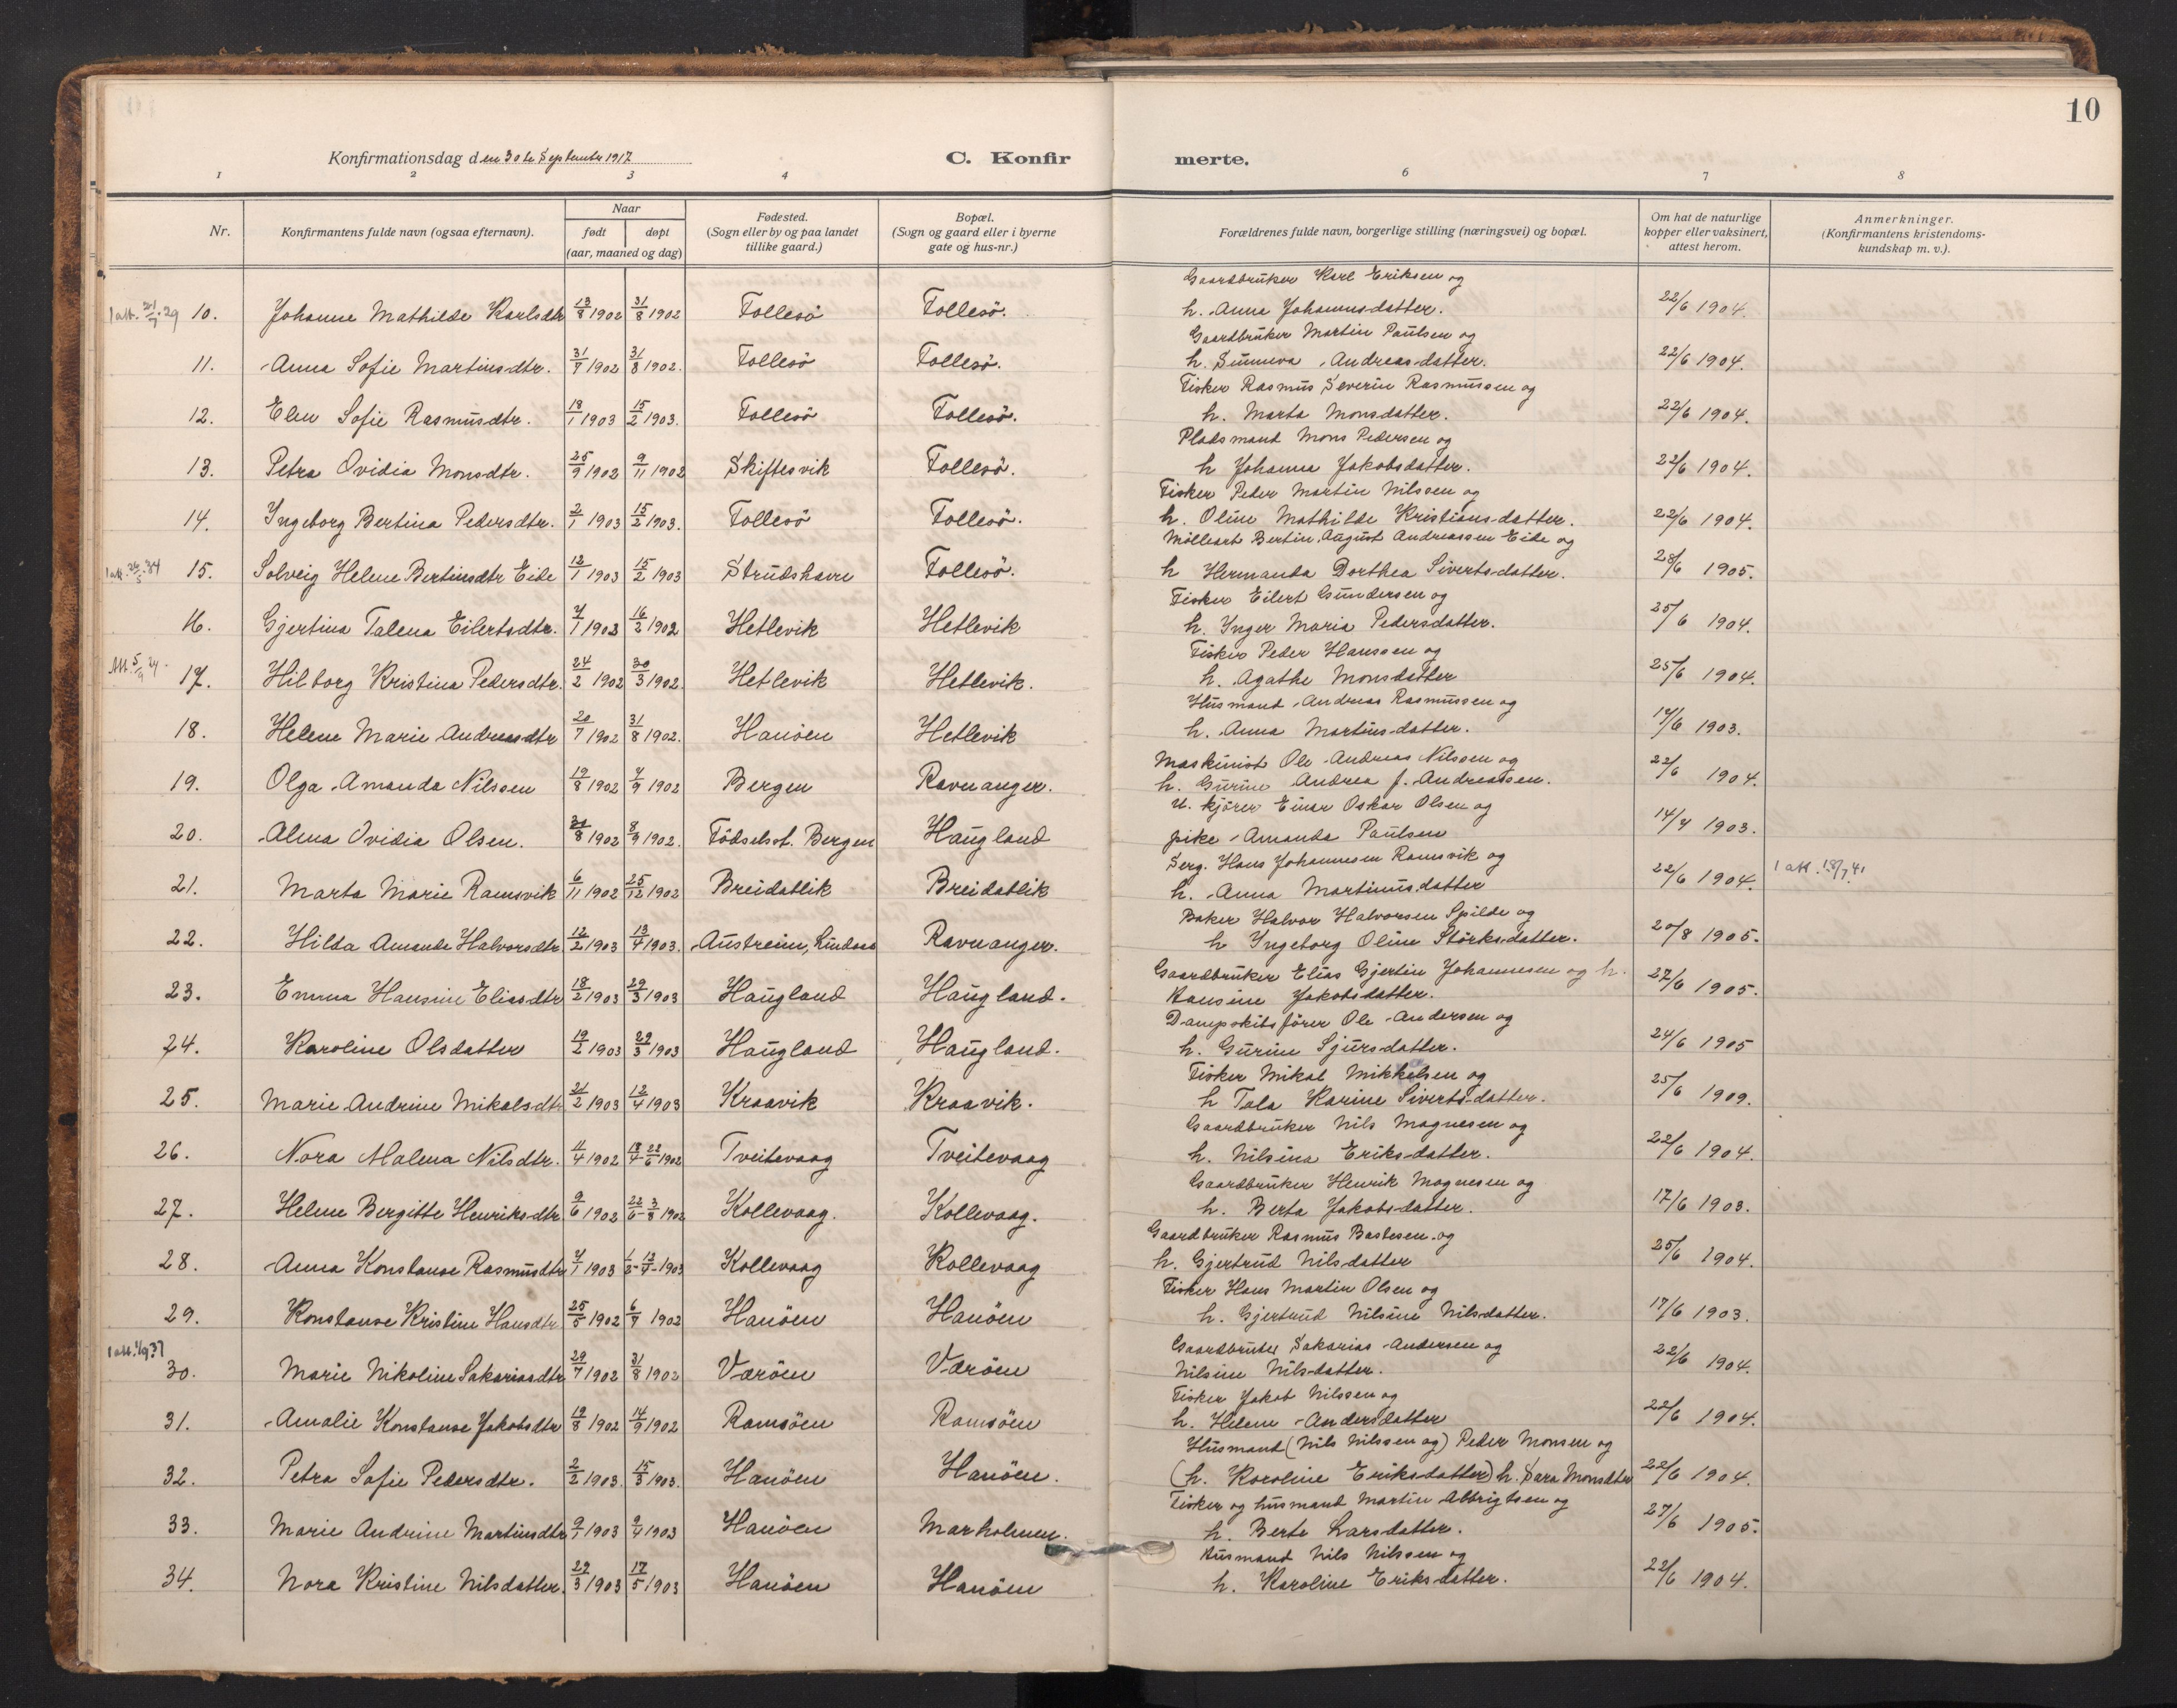 10
Konfirmationsdag den 30te September 1917
C. Konfirmerte.
1 2 3 4 6 7 8
Nr.
Konfirmantens fulde navn (ogsaa efternavn).
Naar
født døpt
(aar, maaned og dag)
Fødested.
(Sogn eller by og paa landet
tillike gaard.)
Bopæl.
(Sogn og gaard eller i byerne
gate og hus-nr.)
Forældrenes fulde navn, borgerlige stilling (næringsvei) og bopæl.
Om hat de naturlige
kopper eller vaksinert,
attest herom.
Anmerkninger.
(Konfirmantens kristendoms-
kundskap m. v.).
Gaardbruker Karl Eriksen og
1 att. 21/7 29 10. Johanne Mathilde Karlsdtr 13/8 1902 31/8 1902 Follesö Follesö. h. Anna Johannesdatter. 22/6 1904.
Gaardbruker Martin Paulsen og
11. Anna Sofie Martinsdtr. 31/7 1902 31/8 1902. Follesö Follesö. h. Sunneva Andreasdatter. 22/6 1904.
Fisker Rasmus Severin Rasmussen og
12. Elen Sofie Rasmusdtr. 18/1 1903 15/2 1903. Follesö Follesö. h. Marta Monsdatter. 22/6 1904.
Pladsmand Mons Pedersen og
13. Petra Ovidia Monsdtr. 25/9 1902 9/11 1902 Skiftesvik Follesö. h Johanna Jakobsdatter. 22/6 1904.
Fisker Peder Martin Nilssen og
14. Ingeborg Bertina Pedersdtr. 2/1 1903 15/2 1903. Follesö Follesö. h. Oline Mathilde Kristiansdatter. 22/6 1904.
Mølleart Bertin August Andreassen Eide og
1 att. 26/5 34 15. Solveig Helene Bertinsdtr Eide 12/1 1903 15/2 1903 Strudshavn Follesö. h Hermanda Dorthea Sivertsdatter. 28/6 1905.
Fisker Eilert Gundersen og
16. Gjertina Talena Eilertsdtr. 7/1 1902 16/2 1902 Hetlevik Hetlevik h. Inger Maria Pedersdatter. 25/6 1904.
Fisker Peder Hanssen og
Att. 5/9 24. 17. Hilborg Kristina Pedersdtr. 24/2 1902 30/3 1902. Hetlevik Hetlevik. h. Agathe Monsdatter 25/6 1904.
Husmand Andreas Rasmussen og
18. Helene Marie Andreasdtr 20/7 1902 31/8 1902. Hanöen Hetlevik h. Anna Martinsdatter. 17/6 1903.
Maskinist Ole Andreas Nilssen og
19. Olga Amanda Nilssen 19/8 1902 7/9 1902 Bergen Ravnanger. h. Gurine Andrea f. Andreassen. 22/6 1904.
u. kjører Einar Oskar Olsen og
20. Alma Ovidia Olsen. 31/8 1902 8/9 1902. Födselsst. Bergen Haugland pike Amanda Paulsen 14/7 1903.
Serg. Hans Johannesen Ramsvik og
21. Marta Marie Ramsvik 6/11 1902 25/12 1902 Breidablik Breidablik h. Anna Martinusdatter 22/6 1904. 1 att. 18/7. 41
Baker Halvor Halvorsen Spilde og
22. Hilda Amanda Halvorsdtr 12/2 1903 13/4 1903. Austreim, Lindaas Ravnanger. h Ingeborg Oline Störksdatter. 20/8 1905.
Gaardbruker Elias Gjertin Johannesen og h.
23. Emma Hansine Eliasdtr 18/2 1903 29/3 1903 Haugland Haugland. Hansine Jakobsdatter. 27/6 1905.
Dampskibsfører Ole Andersen og
24. Karoline Olsdatter 19/2 1903 29/3 1903 Haugland Haugland. h. Gurine Sjursdatter. 24/6 1905
Fisker Mikal Mikkelsen og
25. Marie Andrine Mikalsdtr 21/2 1903 12/4 1903 Kraavik Kraavik. h Tala Karine Sivertsdatter. 25/6 1909.
Gaardbruker Nils Magnesen og
26. Nora Malena Nilsdtr. 11/4 1902 18/4-22/6 1902 Tveitevaag Tveitevaag h. Nilsina Eriksdatter. 22/6 1904.
Gaardbruker Henrik Magnesen og
27. Helene Bergitte Henriksdtr. 9/6 1902 22/6-3/8 1902 Kollevaag. Kollevaag. h. Berta Jakobsdatter. 17/6 1903.
Gaardbruker Rasmus Bastesen og
28. Anna Konstanse Rasmusdtr 7/1 1903 1/2-12/4-1903 Kollevaag Kollevaag h. Gjertrud Nilsdatter 25/6 1904.
Fisker Hans Martin Olsen og
29. Konstanse Kristine Hansdtr 25/5 1902 6/7 1902 Hanöen Hanöen h. Gjertrud Nilsine Nilsdatter. 17/6 1903.
Gaardbruker Sakarias Andersen og
1 att. 1/9 37 30. Marie Nikoline Sakariasdtr 29/7 1902 31/8 1902 Væröen Væröen Nilsine Nilsdatter. 22/6 1904.
Fisker Jakob Nilssen og
31. Amalie Konstanse Jakobsdtr 19/8 1902 14/9 1902 Ramsöen Ramsöen h. Helene Andersdatter 22/6 1904.
Husmand (Nils Nilssen og) Peder Monsen og
32. Petra Sofie Pedersdtr. 2/2 1903. 15/3 1903. Hanöen Hanöen. (h. Karoline Eriksdatter) h. Sara Monsdtr 22/6 1904.
Fisker og husmand Martin Albrigtsen og
33. Marie Andrine Martinsdtr 9/1 1903 9/4 1903 Hanöen Marholmen. h. Berte Larsdatter. 27/6 1905.
Husmand Nils Nilssen og
34. Nora Kristine Nilsdatter. 29/3 1903 17/5 1903 Hanöen Hanöen h. Karoline Eriksdatter. 22/6 1904.